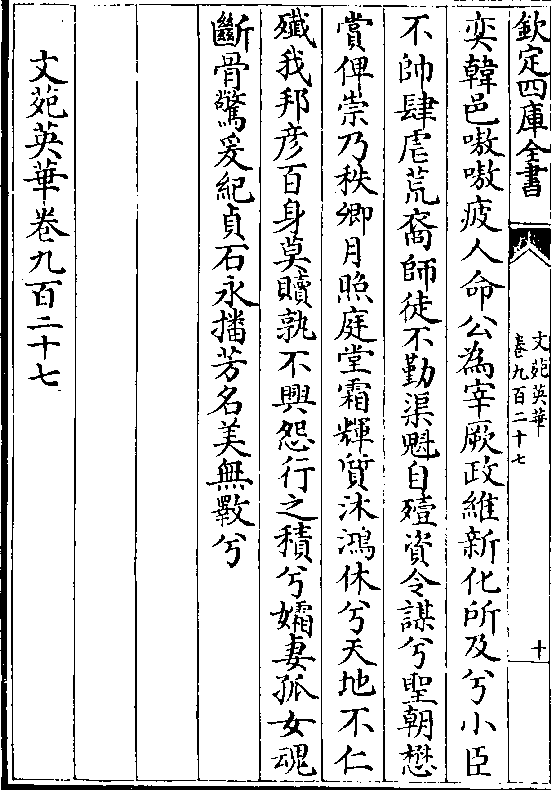 欽定四庫全書
文苑英華
卷九百二十七
十
奕韓邑嗷嗷疲人命公為宰厥政維新化所及兮小臣
不帥肆虐荒裔師徒不勤渠魁自殪資令謀兮聖朝懋
賞俾崇乃秩卿月照庭堂霜輝質沐鴻休兮天地不仁
殲我邦彦百身莫贖孰不興怨行之積兮孀妻孤女魂
斷骨驚爰紀貞石永播芳名美無斁兮
文苑英華卷九百二十七